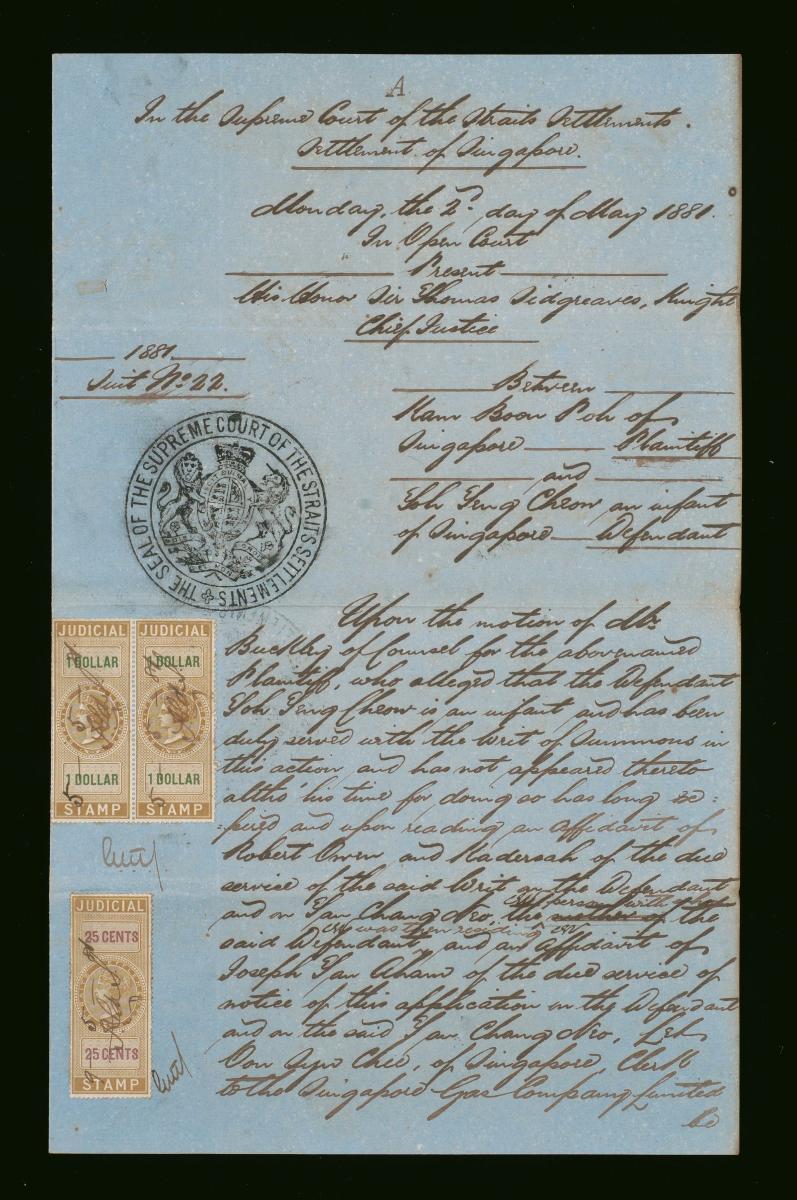 A
In the Supreme Court of the Straits Settlements.
Settlement of Singapore.
Monday, the 2d. day of May 1881.
In Open Court
Present
His Honor Sir Thomas Sidgreaves, Knight
Chief Justice
1881
Suit No. 22.
Between
Kam Boon Poh of
Singapore Plaintiff
and
Yoh Teng Cheow an infant
of Singapore Defendant
THE SEAL OF THE SUPREME COURT OF THE STRAITS SETTLEMENTS
Upon the motion of Mr.
Buckley of Counsel for the abovenamed
Plaintiff, who alleged that the Defendant
Yoh Teng Cheow is an infant and has been
duly served with the Writ of Summons in
this action and has not appeared thereto
altho' his time for doing so has long ex=
=pired and upon reading an affidavit of
Robert Owen and Kadersah of the due
service of the said Writ on the Defendant
and on Tan Chang Neo, the mother of the
person with
was then residing
said Defendant, and an affidavit of
Joseph Tan Aham of the due service of
notice of this application on the Defendant
and on the said Tan Chang Neo, Let
Oon Syn Chee, of Singapore, Clerk
to the Singapore Gas Company Limited
be
JUDICIAL
1 DOLLAR
1 DOLLAR
STAMP
JUDICIAL
1 DOLLAR
1 DOLLAR
STAMP
JUDICIAL
25 CENTS
25 CENTS
STAMP